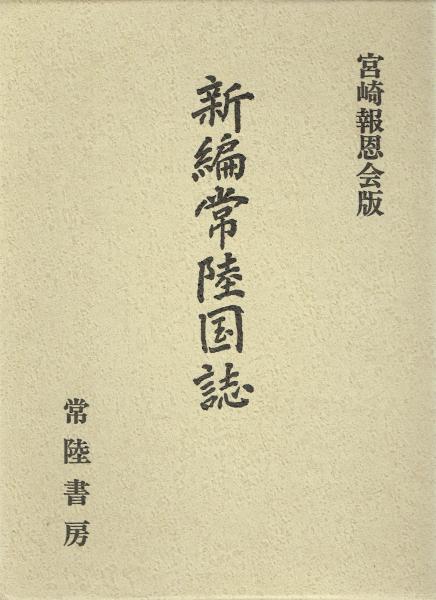 宮崎報恩会版
新編常陸国誌
常陸書房